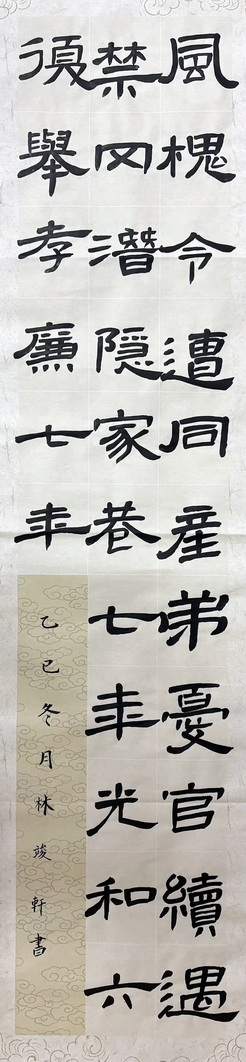 風槐令遭同産弟憂官續遇
禁冈潛隱家巷七年光和六
復舉孝廉七年
乙巳冬月林竣軒書